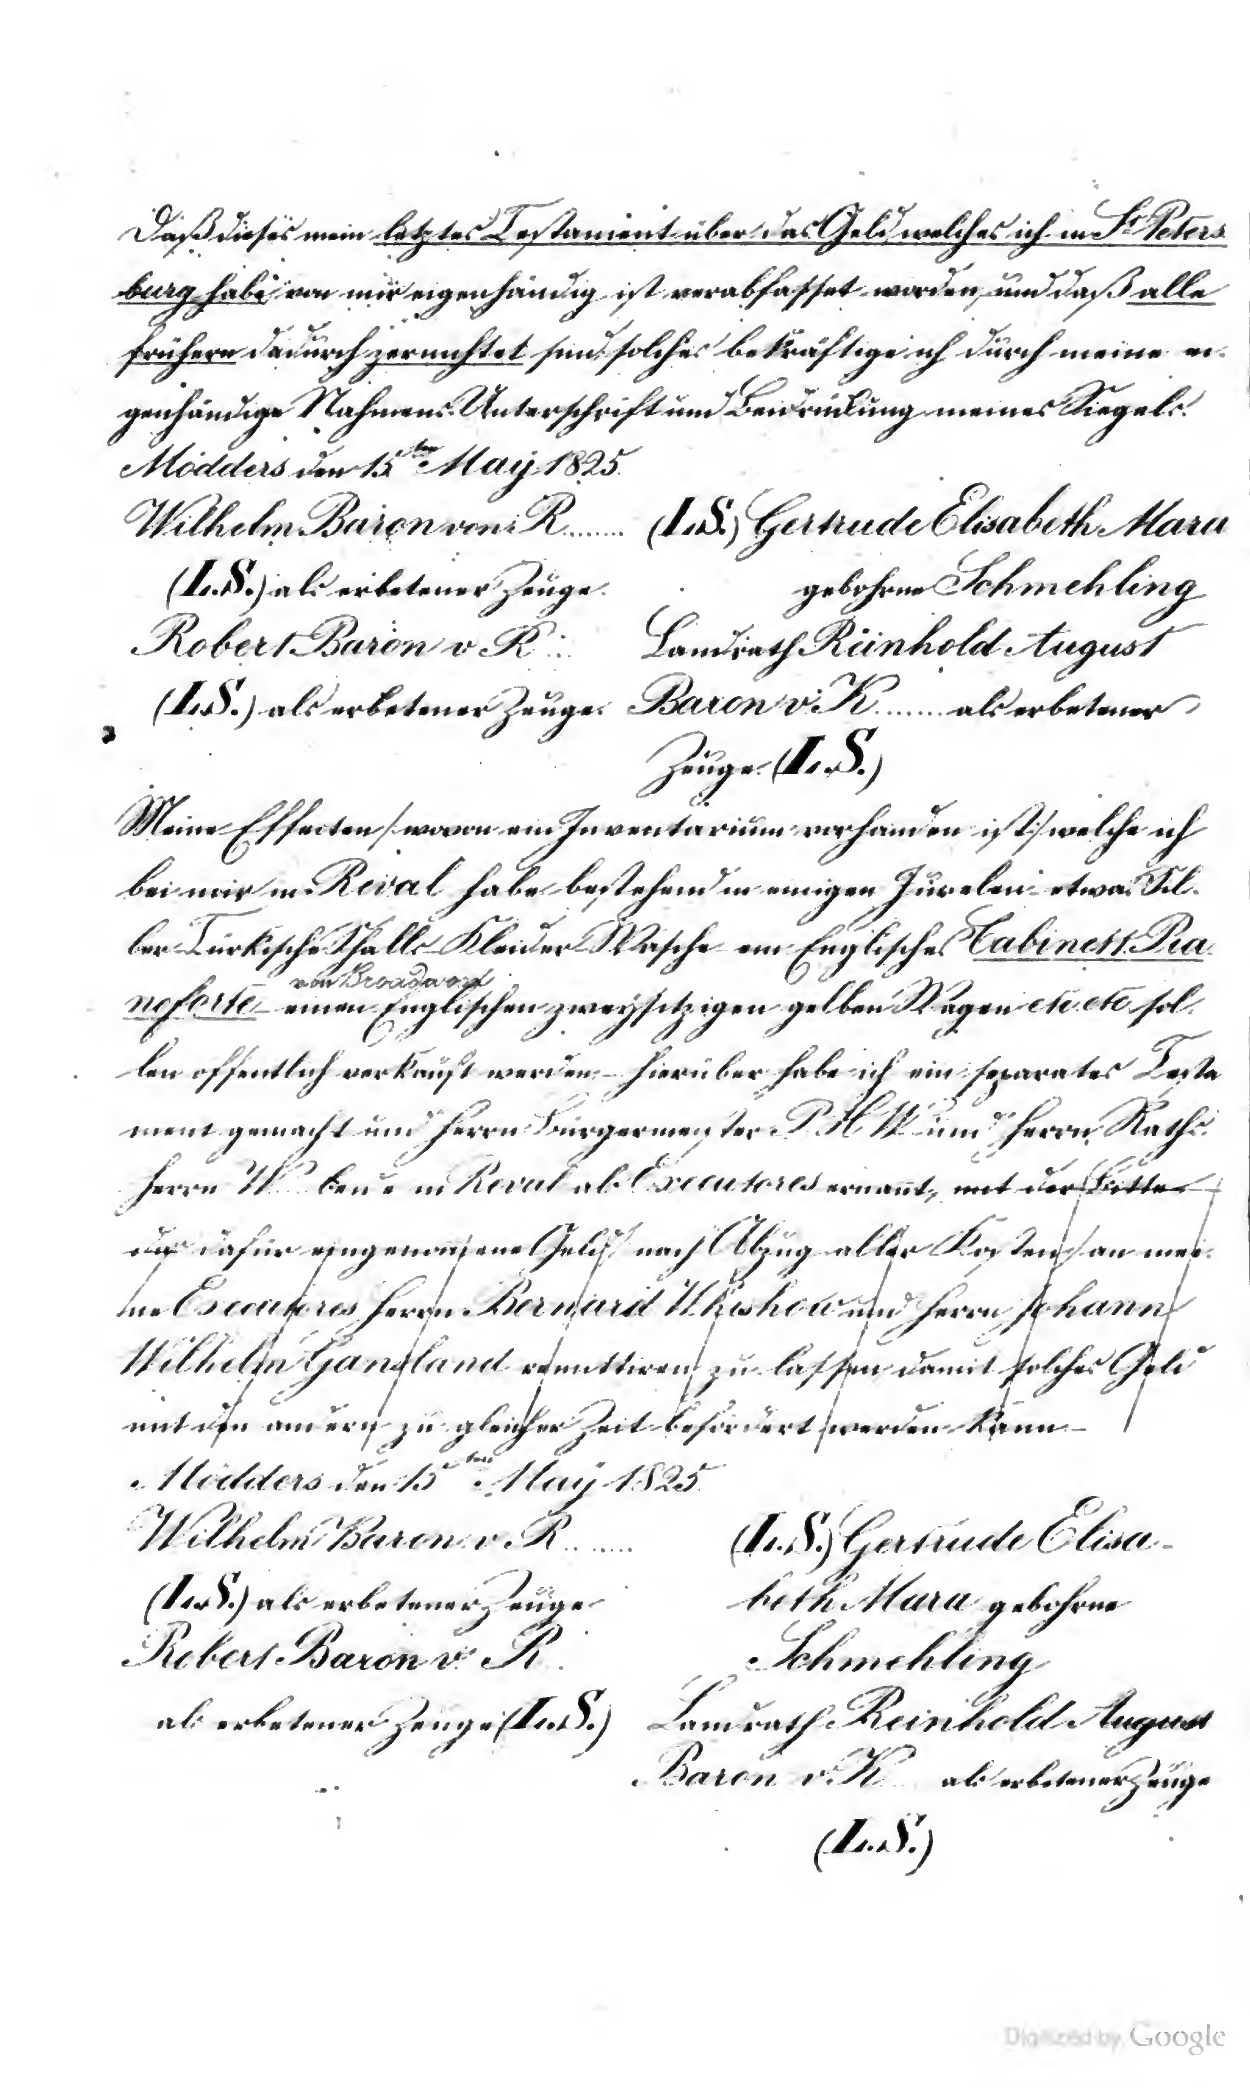 Daß dieses mein letztes Testament über das Geld welches ich in St Peters
burg habe, von mir eigenhändig ist verabfasset worden, und daß alle
frühern dadurch zernichtet sind, solches bekräftige ich durch meine ei-
genhändige Nahmens Unterschrift und Beidrückung meines Siegels.
Mödders den 15ten May 1825.
Wilhelm Baron von R........ (L.S.) Gertrude Elisabeth Mara
(L.S.) als erbetener Zeuge. gebohrne Schmehling
Robert Baron v R... Landrath Reinhold August
(L.S.) als erbetener Zeuge. Baron v. K....... als erbetener
Zeuge. (L.S.)
Meine Effecten /:wovon ein Inventarium vorhanden ist:/ welche ich
bei mir in Reval habe bestehend in einigen Juwelen etwas Sil-
ber Türkische Shalls Kleider Wäsche ein Englisches Cabinett Pia-
von Broadwood
noforte einen Englischen zweysitzigen gelben Wagen etc etc sol-
len öffentlich verkauft werden – hierüber habe ich ein separates Testa
ment gemacht und Herrn Bürgermeister P. H. W. und Herrn Raths-
herrn W... beide in Reval als Executores ernannt, mit der Bitte
das dafür eingenommene Geld nach Abzug aller Kosten an mei-
ne Executores Herrn Bernard und Herrn Johann
Wilhelm remittiren zu lassen damit solches Geld
mit den andern zu gleicher Zeit befördert werden kann –
Mödders den 15ten May 1825.
Wilhelm Baron v. R........ (L.S.) Gertrude Elisa-
(L.S.) als erbetener Zeuge beth Mara gebohrne
Robert Baron v. R. Schmehling
als erbetener Zeuge (L.S.) Landrath Reinhold August
Baron v. K... als erbetener Zeuge
(L.S.)
Digitized by Google